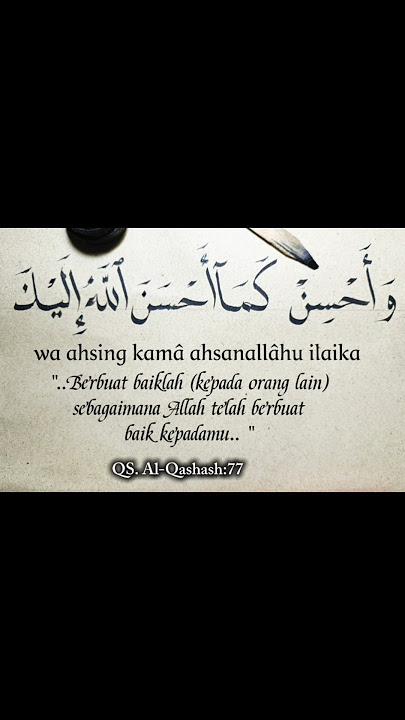 وَأَحْسِنْ كَمَآ أَحْسَنَ ٱللَّهُ إِلَيْكَ
wa ahsing kamâ ahsanallâhu ilaika
"..Berbuat baiklah (kepada orang lain)
sebagaimana Allah telah berbuat
baik kepadamu.. "
QS. Al-Qashash:77